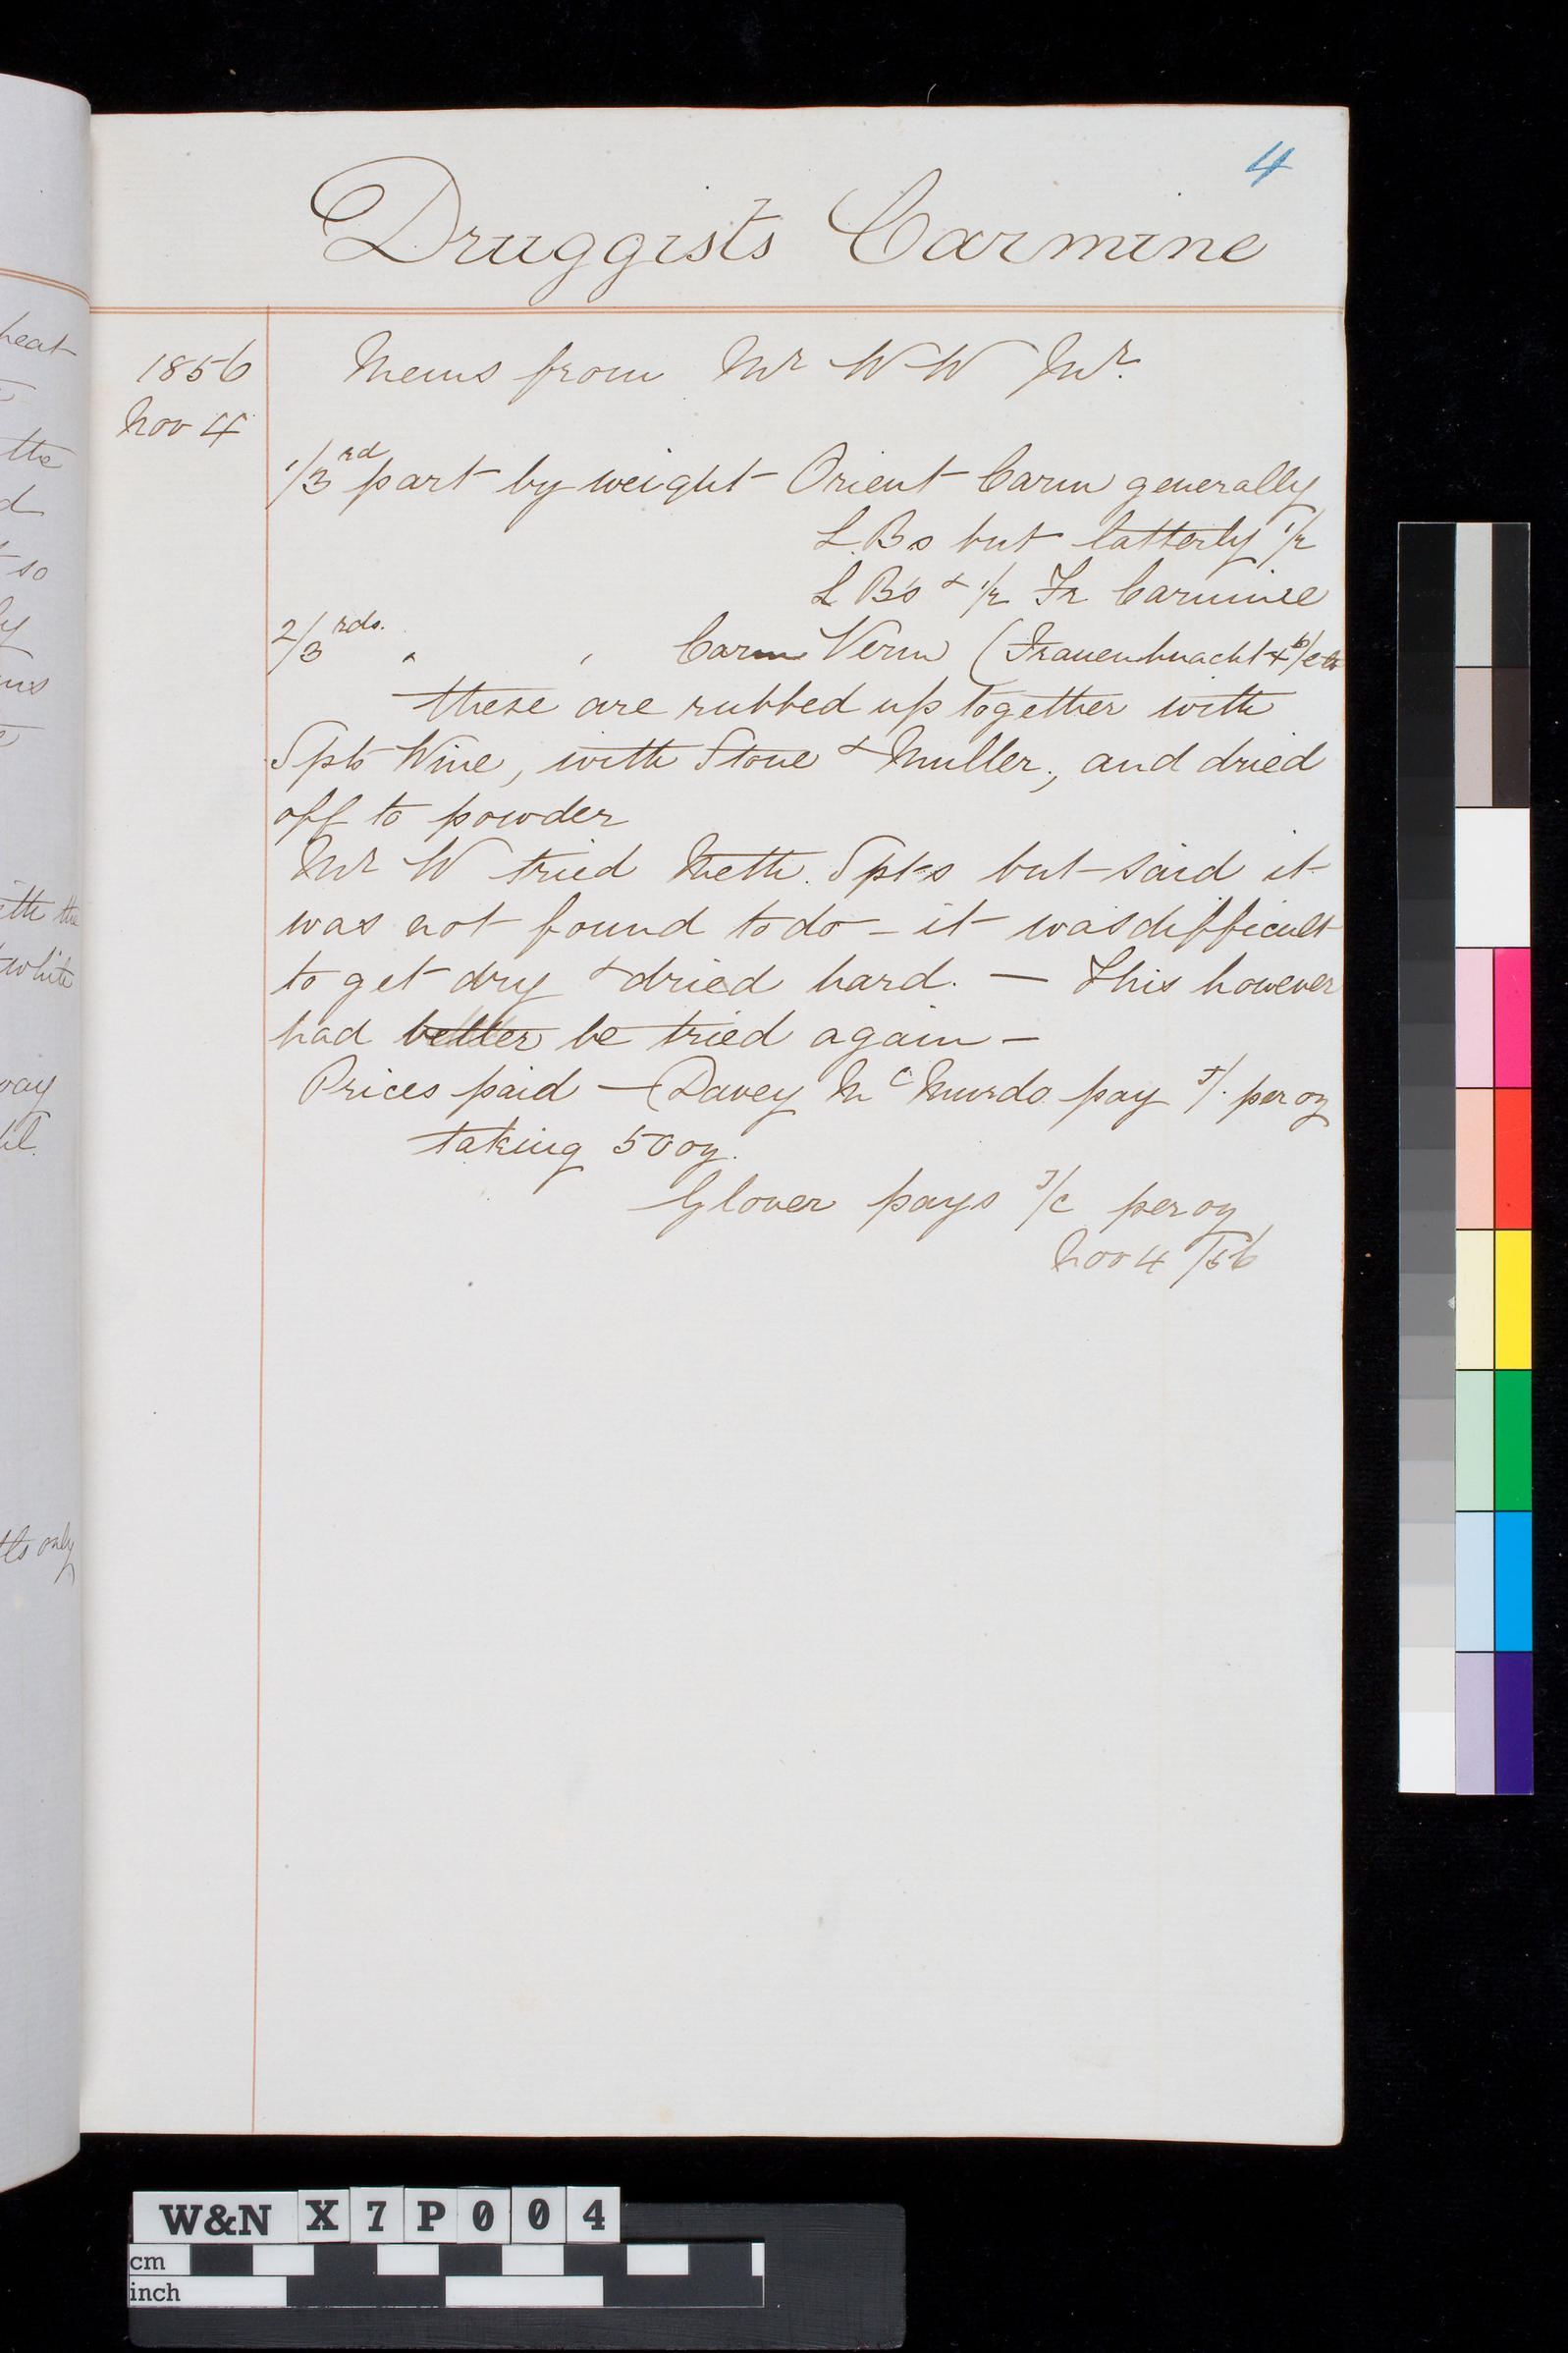 4
Druggists Carmine
1856
Nov 4
Mems from Mr W W Jnr.
1/3rd part by weight Orient Carm generally
L.Bs but latterly 1/2
L B's & 1/2 Fr Carmine
2/3rds. " " Carm Verm (Frauenknacht
these are rubbed up together with
Spts Wine, with Stone & Muller, and dried
off to powder
Mr W tried Meth. Spts but said it
was not found to do - it was difficult
to get dry & dried hard. — This however
had better be tried again -
Prices paid — Davey McMurdo pay per oz
taking 50 oz.
Glover pays per oz
Nov 4 /56
heat
the
d
so
ly
ith the
white
way
only
W&N X7P004
cm
inch